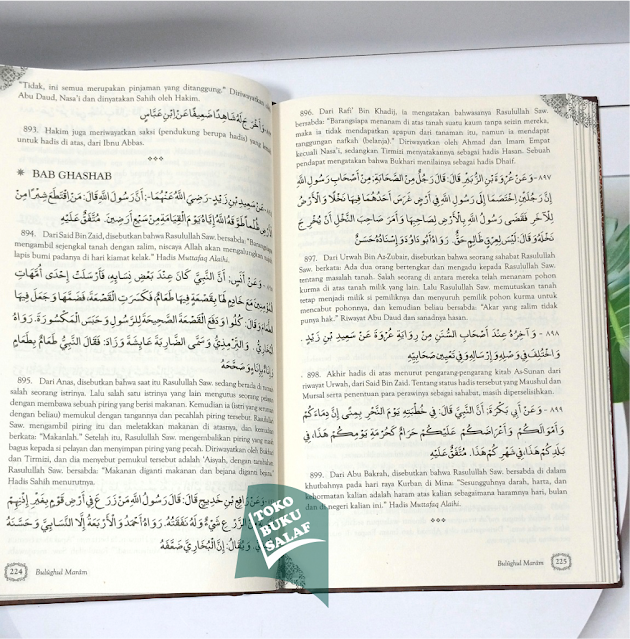 "Tidak, ini semua merupakan pinjaman yang ditanggung." Diriwayatkan
Abu Daud, Nasa'i dan dinyatakan Sahih oleh Hakim.
وَأَخْرَجَ لَهُ شَاهِدًا ضَعِيفًا عَنْ ابْنِ عَبَّاسٍ
893. Hakim juga meriwayatkan saksi (pendukung berupa hadis) yang
untuk hadis di atas, dari Ibnu Abbas.
BAB GHASHAB
عَنْ سَعِيدِ بْنِ زَيْدٍ - رَضِيَ اللَّهُ عَنْهُمَا - أَنَّ رَسُولَ اللَّهِ قَالَ: مَنْ اقْتَطَعَ شِبْرًا مِنْ
ظُلْمًا طَوَّقَهُ اللَّهُ إِيَّاهُ يَوْمَ الْقِيَامَةِ مِنْ سَبْعِ أَرَضِينَ. مُتَّفَقٌ عَلَيْهِ
894. Dari Said Bin Zaid, disebutkan bahwa Rasulullah Saw. bersabda: "Barangsiapa
mengambil sejengkal tanah dengan zalim, niscaya Allah akan mengalungkan
lapis bumi padanya di hari kiamat kelak." Hadis Muttafaq Alaihi.
وَعَنْ أَنَسٍ؛ أَنَّ النَّبِيَّ كَانَ عِنْدَ بَعْضِ نِسَابِهِ، فَأَرْسَلَتْ إِحْدَى أُمَّهَاتِ
الْمُؤْمِنِينَ مَعَ خَادِمٍ لَهَا بِقَصْعَةٍ فِيهَا طَعَامٌ، فَكَسَرَتِ الْقَصْعَةَ، فَضَمَّهَا وَجَعَلَ فِيهَا
الطَّعَامَ وَقَالَ: كُلُوا وَدَفَعَ الْقَصْعَةَ الصَّحِيحَةَ لِلرَّسُولِ وَحَبَسَ الْمَكْسُورَةَ. رَوَاهُ
الْبُخَارِيُّ، وَالتِّرْمِذِيُّ وَسَمَّى الضَّارِبَةَ عَايِشَةَ وَزَادَ: فَقَالَ النَّبِيُّ طَعَامٌ بِطَعَامٍ
وَإِنَاءٌ بِإِنَاءٍ وَصَحَّحَهُ
895. Dari Anas, disebutkan bahwa saat itu Rasulullah Saw. sedang berada di
salah seorang istrinya. Lalu salah satu istrinya yang lain mengutus seorang pelayan
dengan membawa sebuah piring yang berisi makanan. Kemudian ia (istri yang
dengan beliau) memukul dengan tangannya dan pecahlah piring tersebut.
Saw. mengambil piring itu dan meletakkan makanan di atasnya, dan kemudian
berkata: "Makanlah." Setelah itu, Rasulullah Saw. mengembalikan piring yang masih
bagus kepada si pelayan dan menyimpan piring yang pecah. Diriwayatkan oleh Bukhari
dan Tirmidzi. Disebutkan pula bahwa penolehnya adalah 'Aisyah, dengan tambahan
Tirmidzi, Rasulullah Saw. bersabda: "Makanan diganti makanan dan bejana diganti bejana."
Hadis Sahih menurutnya.
وَعَنْ رَافِعِ بْنِ خَدِيجٍ قَالَ: قَالَ رَسُولُ اللَّهِ مَنْ زَرَعَ فِي أَرْضِ قَوْمٍ بِغَيْرِ إِذْنِهِمْ
الزَّرْعِ شَيْءٌ وَلَهُ نَفَقَتُهُ. رَوَاهُ أَحْمَدُ وَالْأَرْبَعَةُ إِلَّا النَّسَابِيَّ وَحَسَّنَهُ
وَيُقَالُ: إِنَّ الْبُخَارِيَّ ضَعَّفَهُ
224 Bulûghul Marâm
896. Dari Rafi' Bin Khadij, ia mengatakan bahwasanya Rasulullah Saw.
bersabda: "Barangsiapa menanam di atas tanah suatu kaum tanpa seizin mereka,
maka ia tidak mendapatkan apapun dari tanaman itu, namun ia mendapat
nafkah (belanja)." Diriwayatkan oleh Ahmad dan Imam Empat
kecuali Nasa'i, sedangkan Tirmizi menyatakannya sebagai hadis Hasan. Sebuah
pendapat mengatakan bahwa Bukhari menilainya sebagai hadis Dhaif.
٨٩٧- وَعَنْ عُرْوَةَ بْنِ الزُّبَيْرِ قَالَ: قَالَ رَجُلٌ مِنْ الصَّحَابَةِ؛ مِنْ أَصْحَابِ رَسُولِ اللَّهِ
إِنَّ رَجُلَيْنِ اخْتَصَمَا إِلَى رَسُولِ اللَّهِ فِي أَرْضٍ غَرَسَ أَحَدُهُمَا فِيهَا نَخْلًا وَالْأَرْضُ
لِلْآخَرِ فَقَضَى رَسُولُ اللَّهِ بِالْأَرْضِ لِصَاحِبِهَا وَأَمَرَ صَاحِبَ النَّخْلِ أَنْ يُخْرِجَ
نَخْلَهُ وَقَالَ: لَيْسَ لِعِرْقٍ ظَالِمٍ حَقٌّ. رَوَاهُ أَبُو دَاوُدَ وَإِسْنَادُهُ حَسَنٌ
897. Dari Urwah Bin Az-Zubair, disebutkan bahwa seorang sahabat Rasulullah
Saw. berkata: Ada dua orang bertengkar dan mengadu kepada Rasulullah Saw.
tentang masalah tanah. Salah seorang di antara mereka telah menanam pohon
kurma di atas tanah milik yang lain. Lalu Rasulullah Saw. memutuskan tanah
tetap menjadi milik si pemiliknya dan menyuruh pemilik pohon kurma untuk
mencabut pohonnya, dan kemudian beliau bersabda: "Akar yang zalim tidak
punya hak." Riwayat Abu Daud dan sanadnya hasan.
٨٩٨- وَآخِرُهُ عِنْدَ أَصْحَابِ السُّنَنِ مِنْ رِوَايَةِ عُرْوَةَ عَنْ سَعِيدِ بْنِ زَيْدٍ.
وَاخْتُلِفَ فِي وَصْلِهِ وَإِرْسَالِهِ وَفِي تَعْيِينِ صَحَابِيِّهِ
898. Akhir hadis di atas menurut pengarang-pengarang kitab As-Sunan dari
riwayat Urwah, dari Said Bin Zaid. Tentang status hadis tersebut yang Maushul dan
Mursal serta penentuan para perawinya sebagai sahabat, masih diperselisihkan.
٨٩٩- وَعَنْ أَبِي بَكْرَةَ؛ أَنَّ النَّبِيَّ قَالَ: فِي خُطْبَتِهِ يَوْمَ النَّحْرِ بِمِنًى إِنَّ دِمَاءَكُمْ
وَأَمْوَالَكُمْ وَأَعْرَاضَكُمْ عَلَيْكُمْ حَرَامٌ كَحُرْمَةِ يَوْمِكُمْ هَذَا، فِي
بَلَدِكُمْ هَذَا فِي شَهْرِكُمْ هَذَا. مُتَّفَقٌ عَلَيْهِ
899. Dari Abu Bakrah, disebutkan bahwa Rasulullah Saw. bersabda di dalam
khutbahnya pada hari raya Kurban di Mina: "Sesungguhnya darah, harta, dan
kehormatan kalian adalah haram atas kalian sebagaimana haramnya hari, bulan
dan di negeri kalian ini." Hadis Muttafaq Alaihi.
Bulûghul Marâm 225
TOKO
BUKU
SALAF